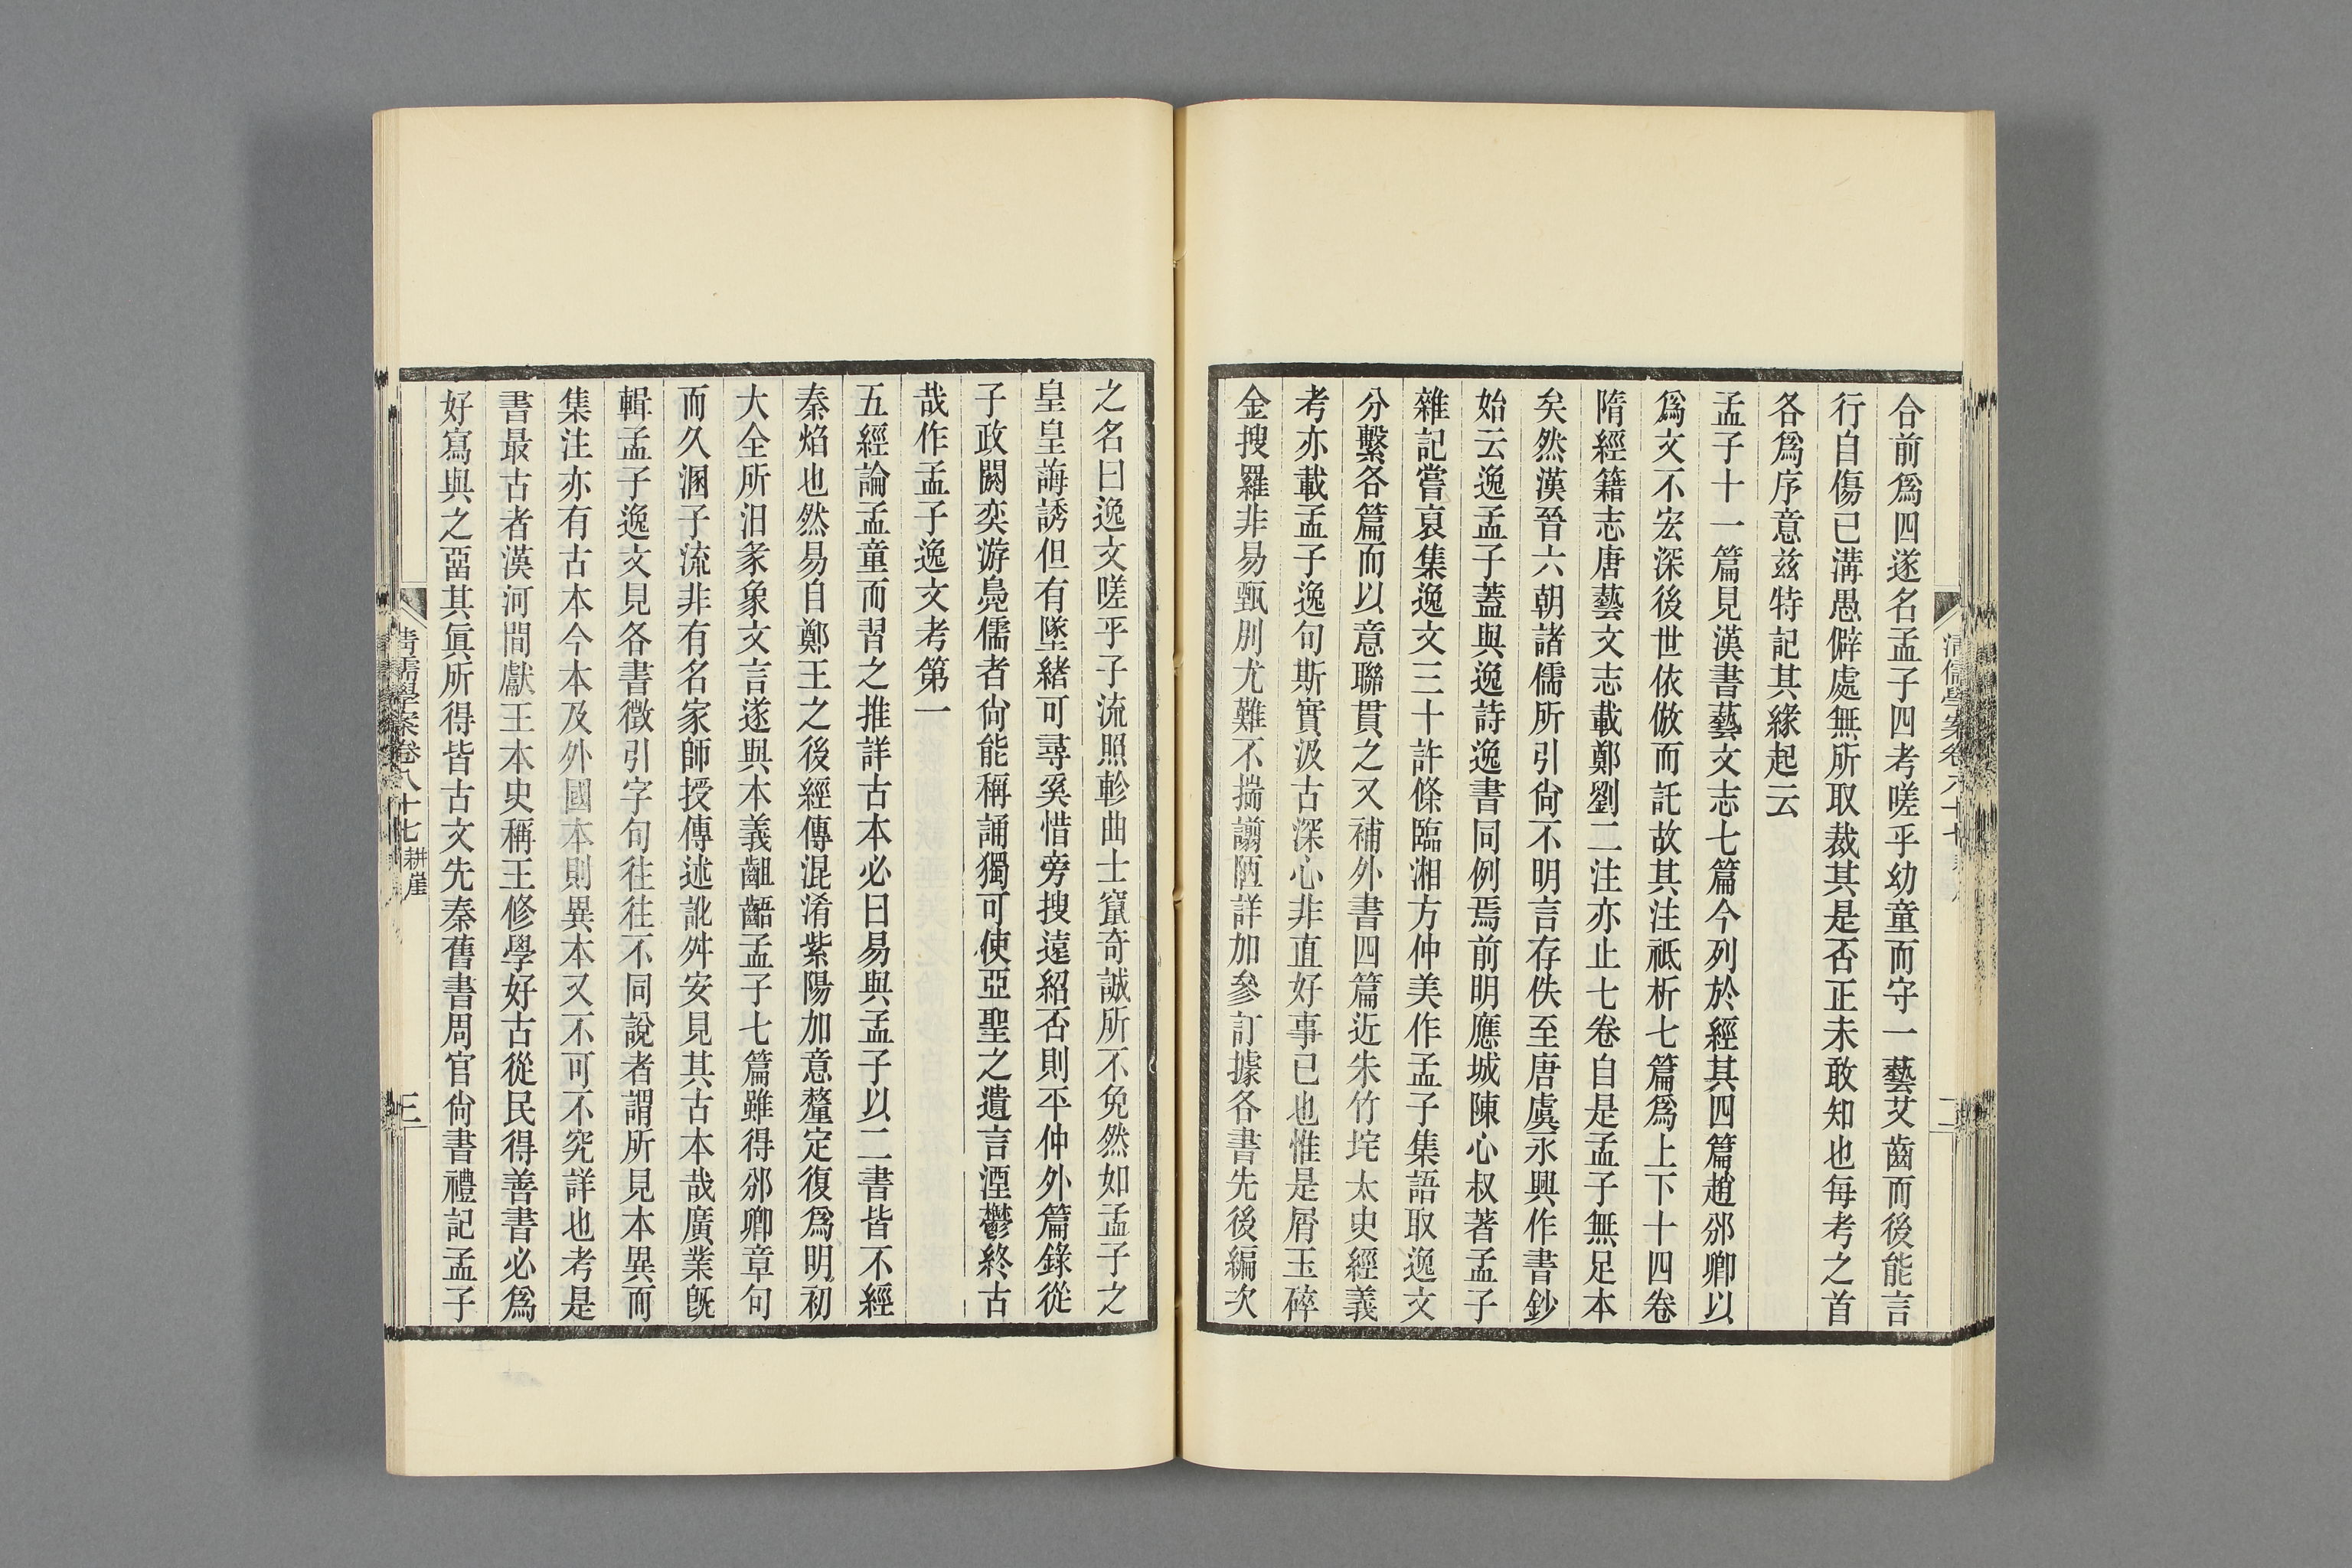 合前爲四遂名孟子四考嗟乎幼童而守一藝艾齒而後能言
行自傷已溝愚僻處無所取裁其是否正未敢知也每考之首
各爲序意兹特記其緣起云
孟子十一篇見漢書藝文志七篇今列於經其四篇趙邠卿以
爲文不宏深後世依倣而託故其注祗析七篇爲上下十四卷
隋經籍志唐藝文志載鄭劉二注亦止七卷自是孟子無足本
矣然漢晉六朝諸儒所引尙不明言存佚至唐虞永興作書鈔
始云逸孟子蓋與逸詩逸書同例焉前明應城陳心叔著孟子
雜記嘗裒集逸文三十許條臨湘方仲美作孟子集語取逸文
分繫各篇而以意聯貫之又補外書四篇近朱竹垞太史經義
考亦載孟子逸句斯實汲古深心非直好事已也惟是屑玉碎
金搜羅非易甄別尤難不揣謭陋詳加參訂據各書先後編次
清儒學案卷八十七
二
之名曰逸文嗟乎子流照軫曲士窺奇誠所不免然如孟子之
皇皇誨誘但有墜緒可尋奚惜旁搜遠紹否則平仲外篇錄從
子政闕奕游鳧儒者尙能稱誦獨可使亞聖之遺言湮鬱終古
哉作孟子逸文考第一
五經論孟童而習之推詳古本必曰易與孟子以二書皆不經
秦焰也然易自鄭王之後經傳混淆紫陽加意釐定復爲明初
大全所汨彖象文言遂與本義齟齬孟子七篇雖得邠卿章句
而久溷子流非有名家師授傳述訛舛安見其古本哉廣業旣
輯孟子逸文見各書徵引字句往往不同說者謂所見本異而
集注亦有古本今本及外國本則異本又不可不究詳也考是
書最古者漢河間獻王本史稱王修學好古從民得善書必爲
好寫與之畱其眞所得皆古文先秦舊書周官尙書禮記孟子
清儒學案卷八十七 耕崖
三